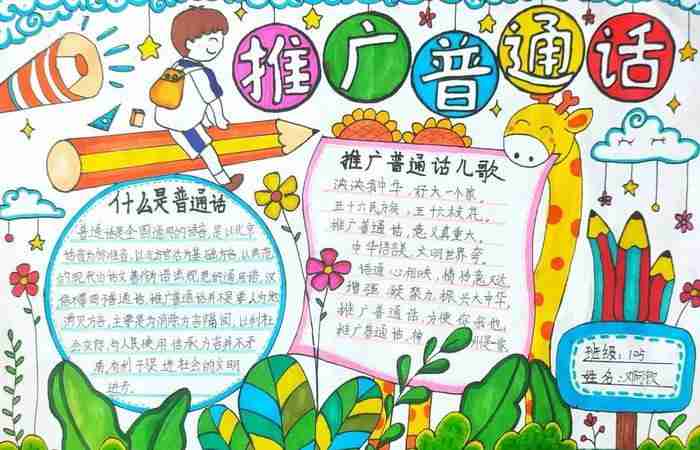 推广普通话
什么是普通话
普通话是全国通用的语言,是以北京
语音为标准音,以北方官话为基础方言,以典范
的现代白话文著作为语法规范的通用语,汉
推广普通话并不是要人为地
消灭方言,主要是为消除方言隔阂,以利社
会交际,与人民使用传承方言并不矛
盾,有利于促进社会的文明
进步。
推广普通话儿歌
泱泱我中华,好大一个家。
五十六民族,五十六支花。
推广普通话,意义真重大。
中华传语美,文明世界夸。
语通心相映,情传意又达
增强凝聚力,振兴大中华,
推广普通话,方便你我他,
推广普通话,神州是一家
班级:105
姓名:邓